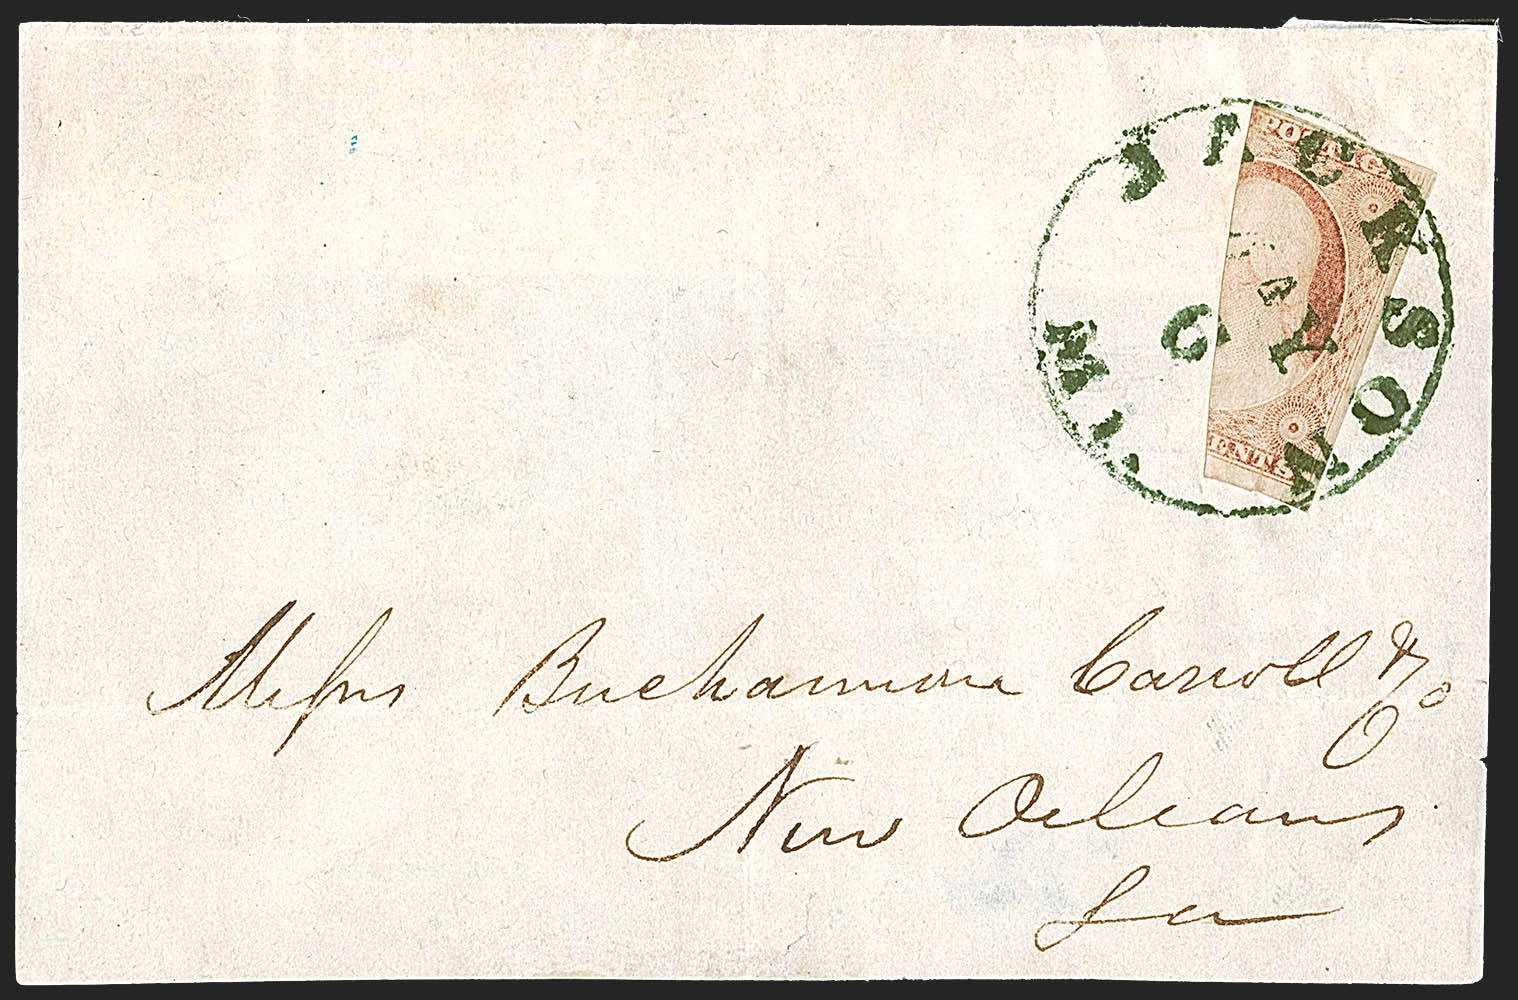 JACKSON MI.
POSTAG
MAY
6
ENTS
Messrs Buchannon Carroll & Co
New Orleans
La